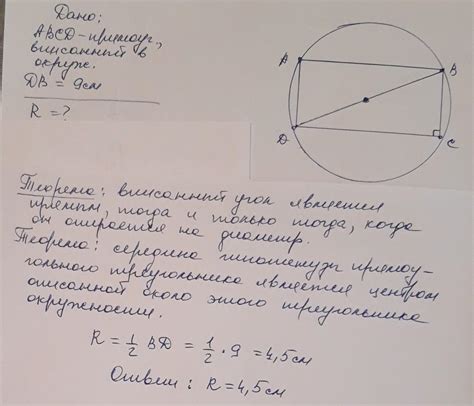 Дано:
ABCD - прямоуг,
вписанный в
окруж.
DB = 9см
R = ?
A
B
D
C
Теорема: вписанный угол является
прямым, тогда и только тогда, когда
он опирается на диаметр.
Теорема: середина гипотенузы прямоу-
гольного треугольника является центром
описанной около этого треугольника
окружности.
R = 1/2 BD = 1/2 · 9 = 4,5 см
Ответ: R = 4,5 см